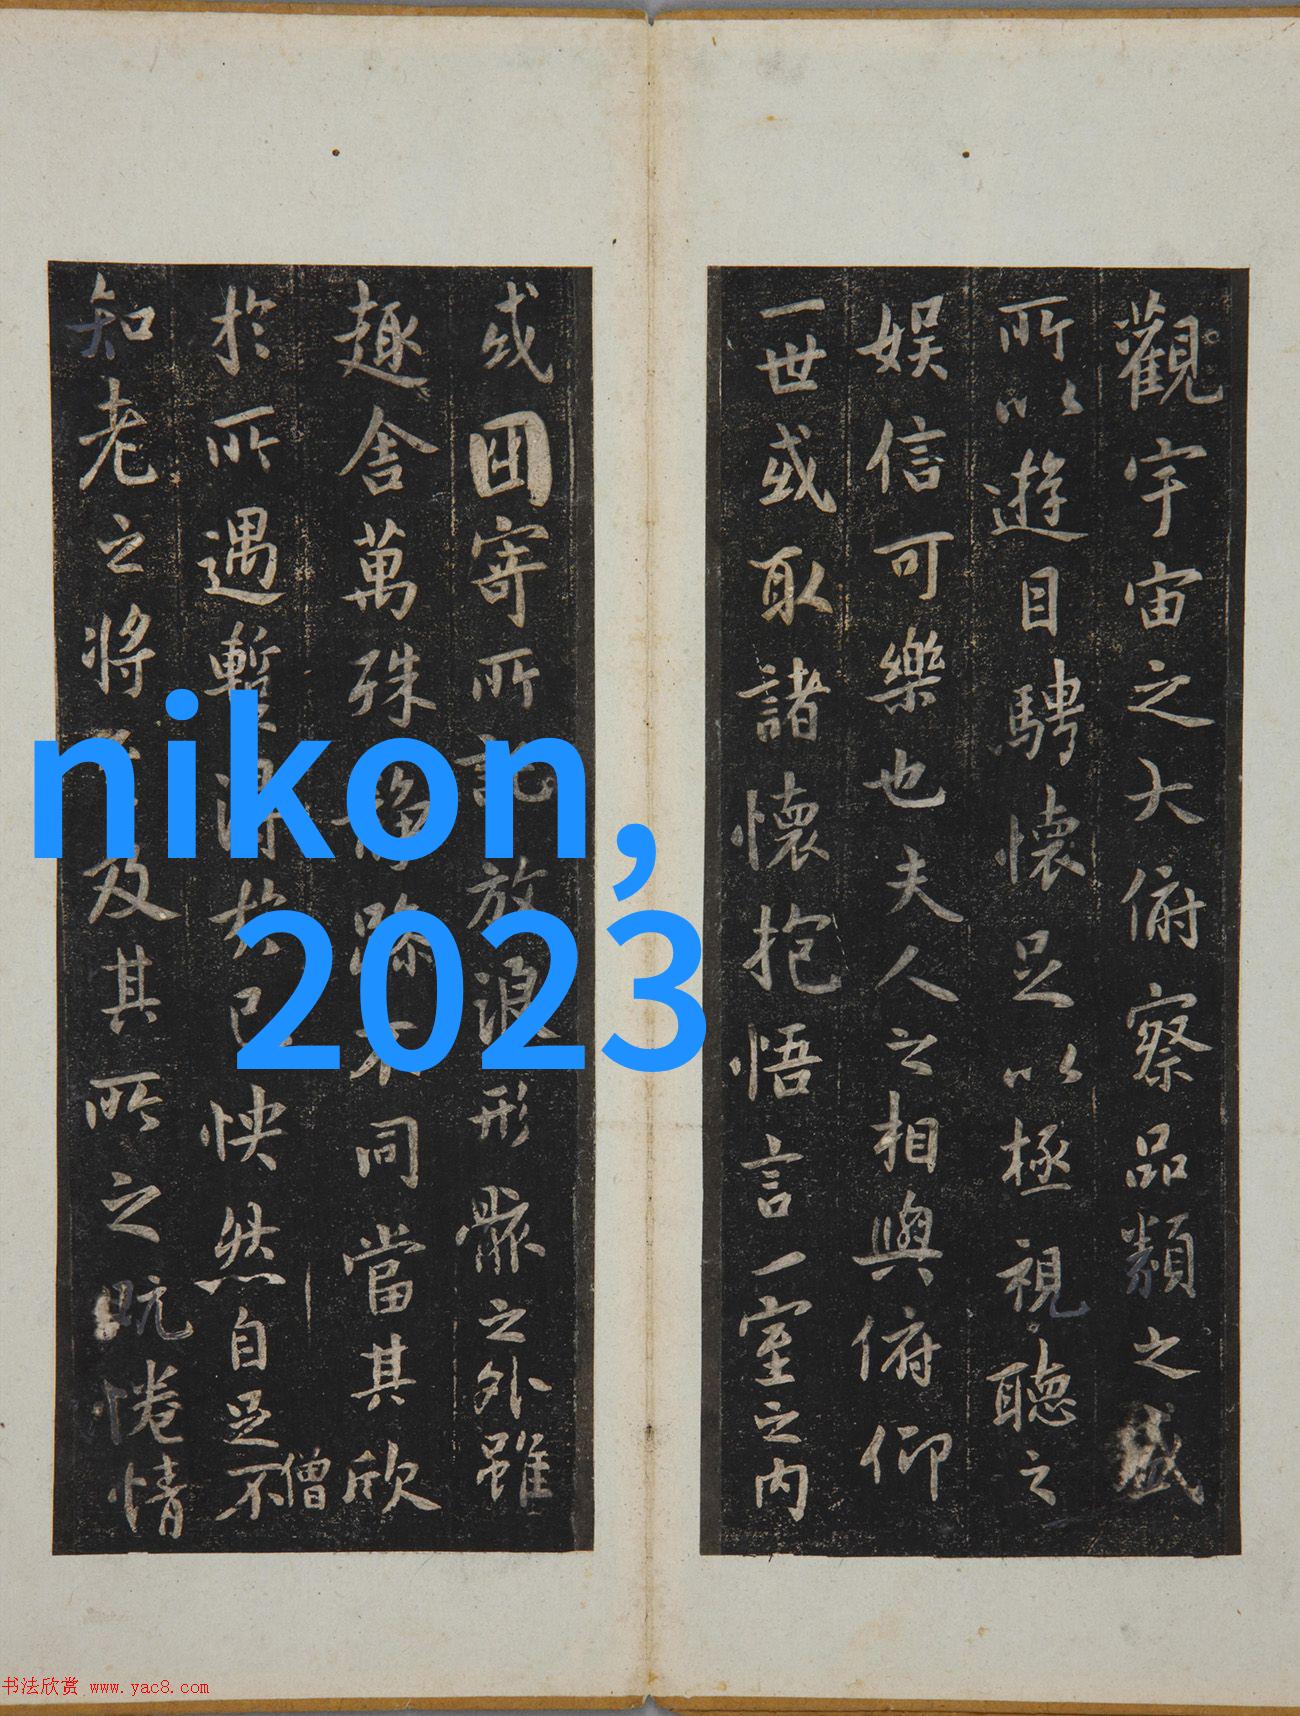 觀宇宙之大俯察品類之盛
所以遊目騁懷足以極視聽之
娛信可樂也夫人之相與俯仰
一世或取諸懷抱悟言一室之內
或因寄所託放浪形骸之外雖
趣舍萬殊静躁不同當其欣
僧
於所遇暫得於己怏然自足不
知老之將至及其所之既惓情
nikon,
2023
书法欣赏 www.yac8.com